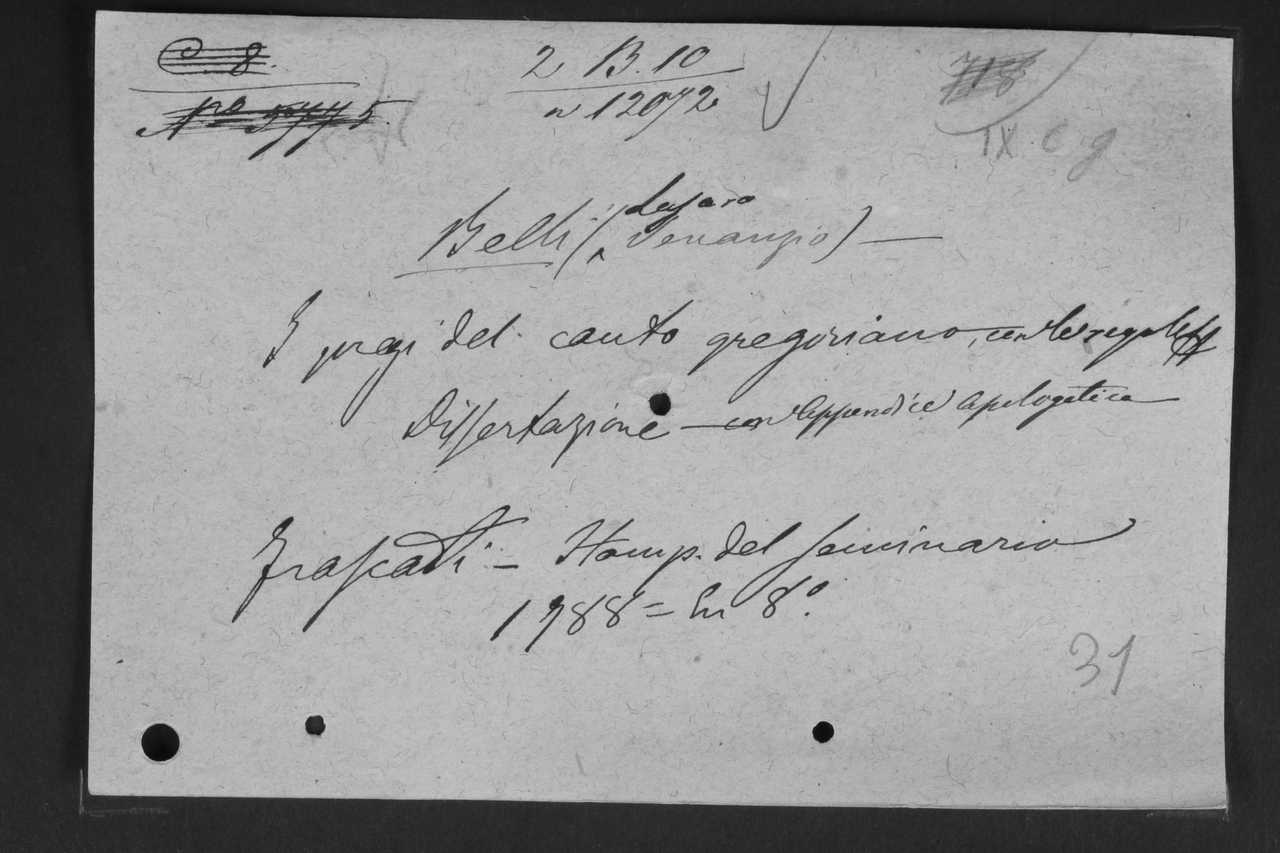 C. 8.
2 B. 10
718
Nº 5775
n 12072
IX. C g
Lazaro
Belli (Venanzio) —
I pregi del canto gregoriano, con le regole
Dissertazione — con Appendice apologetica —
Frascati — Stamp. del Seminario
1788 = In 8º.
31